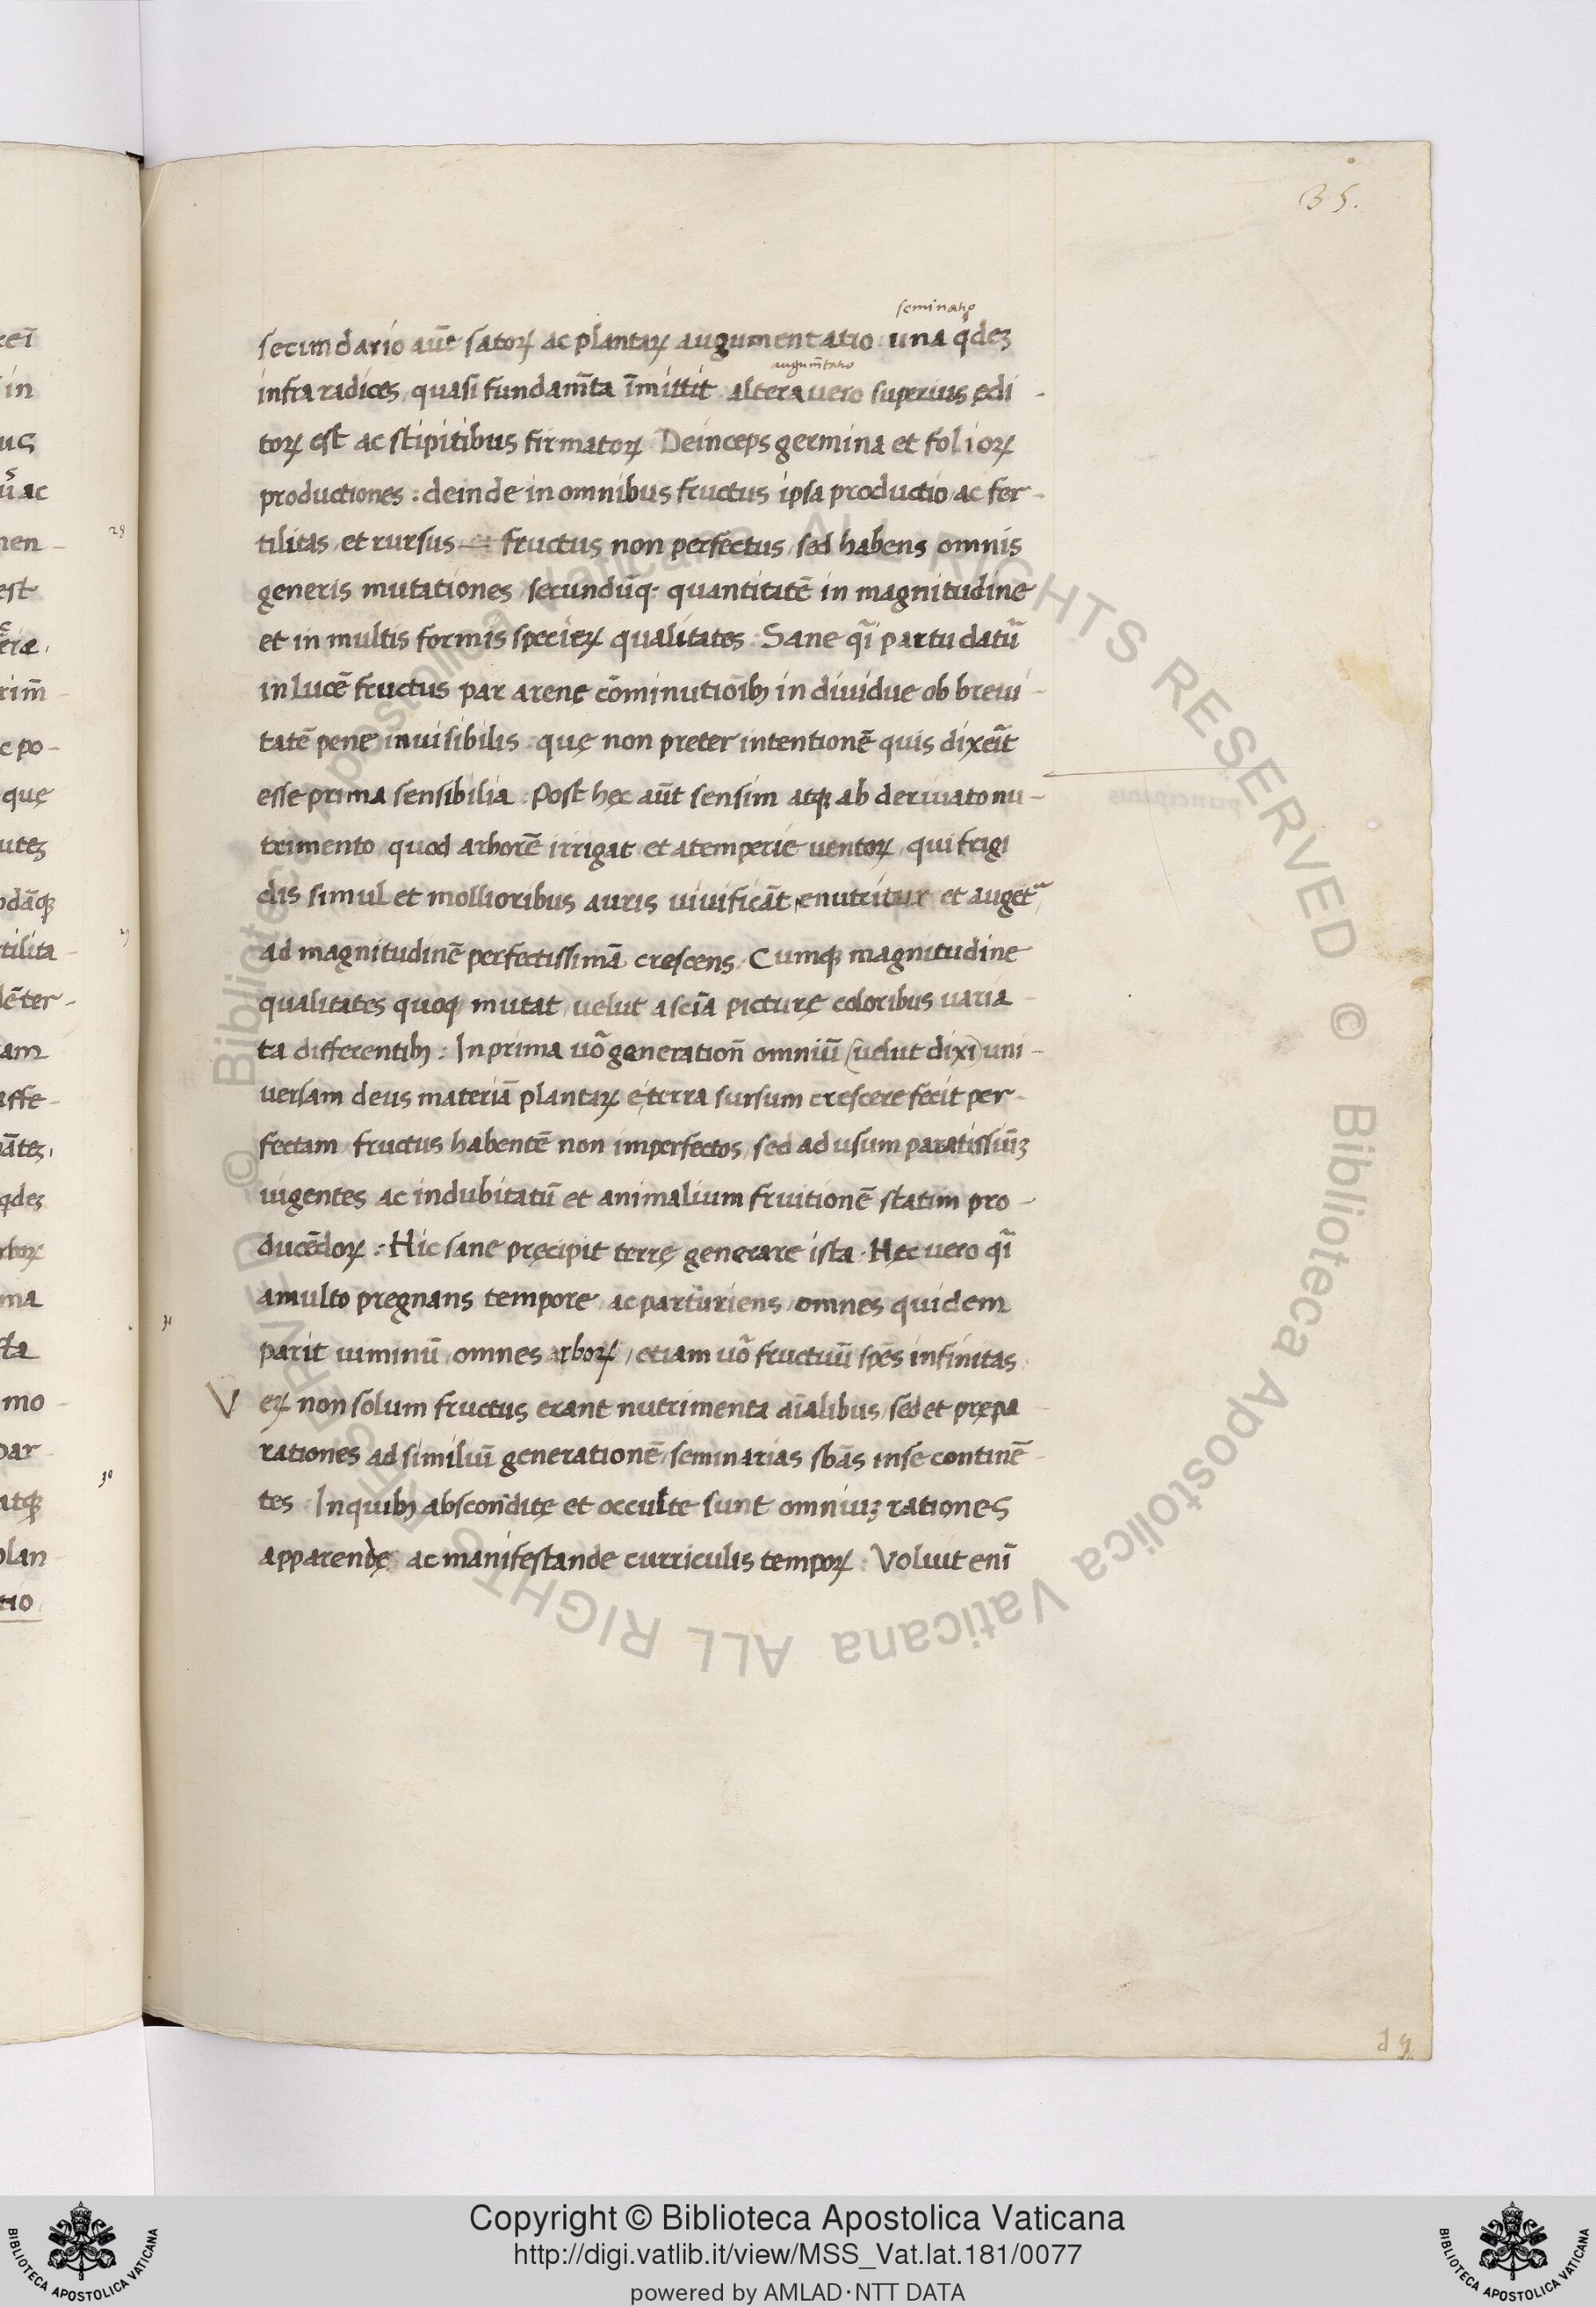 35.
seminatio
secundario aut̄ satoꝝ ac plantaꝝ augumentatio una q̇dez
augum̄tatio
infra radices, quasi fundam̄ta īmittit altera uero superius ędi-
toꝝ est ac stipitibus firmatoꝝ Deinceps germina et folioꝝ
productiones: deinde in omnibus fructus ipsa productio, ac fer-
tilitas, et rursus fructus non perfectus, sed habens omnis
generis mutationes, secundūq; quantitatē in magnitudine
et in multis formis specieꝝ qualitates. Sane qͣi partu datū
in lucē fructus par arenę cōminutiōibꝫ indiuidue ob breui-
tatē pene inuisibilis: quę non preter intentionē quis dixeīt
esse prima sensibilia: Post hęc aūt sensim atqꝫ ab deriuato nu-
trimento, quod arborē irrigat, et a temperie uentoꝝ, qui frigi
dis simul et mollioribus auris uiuificāt, enutritur et augetᷣ,
ad magnitudinē perfectissimā crescens. Cumqꝫ magnitudine
qualitates quoqꝫ mutat, uelut a sciā picturę coloribus uaria-
ta differentibꝫ: In prima uͦo generation̄ omniū (uelut dixi) uni-
uersam deus materiā plantaꝝ e terra sursum crescere fecit per-
fectam, fructus habentē non imperfectos, sed ad usum paratissiūꝫ
uigentes ac indubitatū et animalium fruitionē statim pro-
ducēdoꝝ: Hic sane pręcipit terrę generare ista. Hęc uero qͣi
a multo pregnans tempore, ac parturiens, omnes quidem
parit uiminū, omnes arboꝝ, etiam uͦo fructuū sp̄es infinitas
Veꝝ non solum fructus erant nutrimenta aīalibus, sed et prępa
rationes ad similiū generationē, seminarias sb̄as in se continē-
tes. In quibꝫ abscondite et occulte sunt omniuꝫ rationes
apparendę, ac manifestande curriculis tempoꝝ: Voluit enī
Copyright © Biblioteca Apostolica Vaticana
http://digi.vatlib.it/view/MSS_Vat.lat.181/0077
powered by AMLAD·NTT DATA